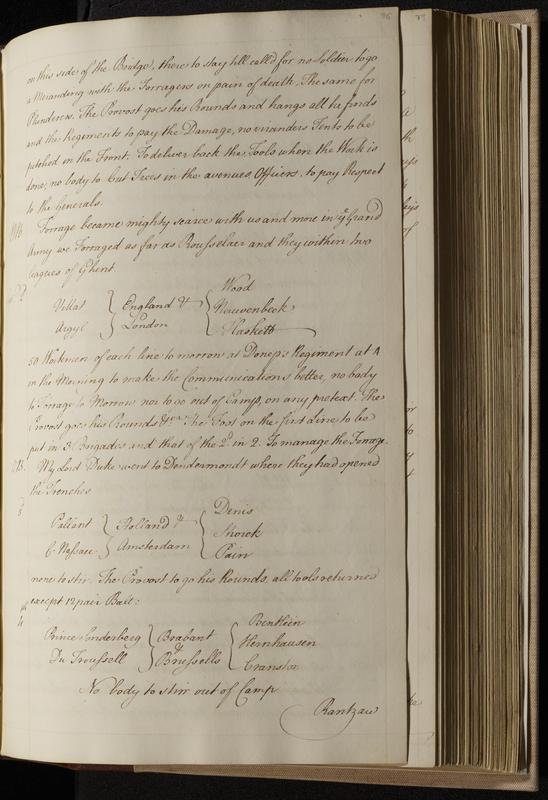 on this side of the Bridge, there to stay till call'd for no Soldier to go
a Merauding with the Forragers on pain of death. The same for
Plunderers. The Provost goes his Rounds and hangs all he finds
and the Regiments to pay the Damage, no vivanders Tents to be
pitched in the Front. To deliver back the Tools when the Work is
done, no body to Cut Trees in the avenues Officers, to pay Respect
to the Generals.
Forrage became mighty scarce with us and more in ye Grand
Army we Forraged as far as Rousselaer and they within two
leagues of Ghent.
Villat
Argyl
England &
London
Wood
Neuvenbeck
Haskett
50 Workmen of each line to morrow at Deneps Regiment at 4
in the Morning to make the Communications better, no body
to Forrage to Morrow nor to go out of Camp, on any pretext. The
Provost goes his Rounds &c. The Foot on the first Line to be
put in 3 Brigades and that of the 2d in 2. To manage the Forrage.
My Lord Duke went to Dendermondt where they had opened
the Trenches
3
Pallant
C. Nassau
Holland &
Amsterdam
Denis
Shonck
Pain
none to stir. The Provost to go his Rounds, all tools returned
except 12 pair Batt:
4
Prince Sonderberg
Du Troussell
Brabant
&
Brussells
Benthien
Hernhausen
Cranston
No body to stirr out of Camp
Rantzaw
76
77